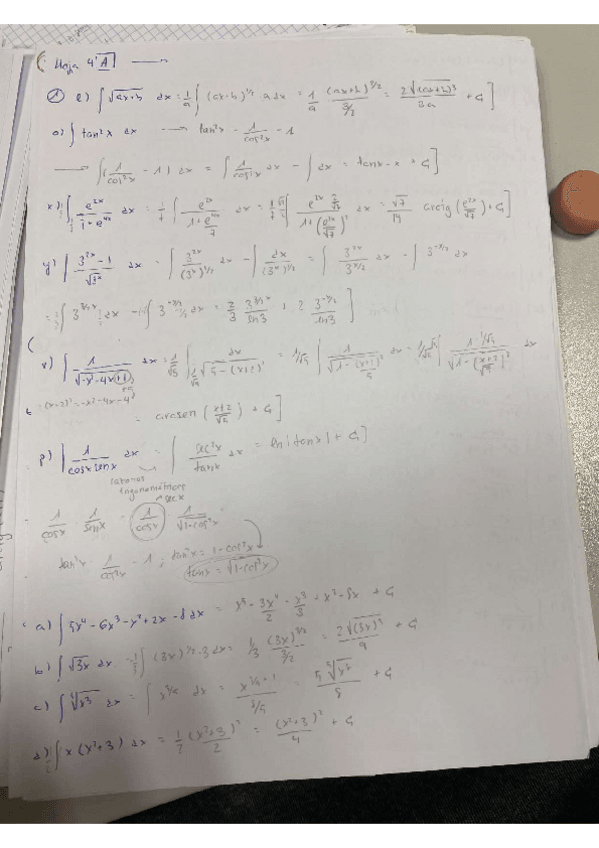 Hoja 4 A
1 e) ∫ √(ax+b) dx = 1/a ∫ (ax+b)^(1/2) · a dx = 1/a (ax+b)^(3/2) / (3/2) = 2√(ax+b)^3 / 3a + C]
o) ∫ tan²x dx → tan²x = 1/cos²x - 1
→ ∫ (1/cos²x - 1) dx = ∫ 1/cos²x dx - ∫ dx = tanx - x + C]
x) ∫ e^(2x) / (7+e^(4x)) dx = 1/7 ∫ e^(2x) / (1+e^(4x)/7) dx = ∫ e^(2x) / (1+(e^(2x)/√7)²) dx = √7/14 arctg (e^(2x)/√7) + C]
y) ∫ (3^(2x) - 1) / √3^x dx = ∫ 3^(2x) / (3^x)^(1/2) dx - ∫ dx / (3^x)^(1/2) = ∫ 3^(2x) / 3^(x/2) dx - ∫ 3^(-x/2) dx
= ∫ 3^(3/2 x) dx - ∫ 3^(-x/2) dx = 2/3 3^(3/2 x) / ln3 + 2 3^(-x/2) / ln3]
r) ∫ 1 / √(-x²-4x+1) dx = 1/√5 ∫ dx / √(5-(x+2)²) = 1/√5 ∫ 1 / √(1-(x+2)²/5) dx = ∫ 1/√5 / √(1-(x+2/√5)²) dx
-(x+2)² = -x²-4x-4
= arcsen (x+2/√5) + C]
p) ∫ 1 / cosx senx dx = ∫ sec²x / tanx dx = ln|tanx| + C]
razones
trigonométricas
secx
= 1/cosx · 1/senx = 1/cosx · 1/√(1-cos²x)
tan²x = 1/cos²x - 1 ; tan²x = 1-cos²x
tanx = √(1-cos²x)
a) ∫ 5x⁴ - 6x³ - x² + 2x - 8 dx = x⁵ - 3x⁴/2 - x³/3 + x² - 8x + C
b) ∫ √3x dx = 1/3 ∫ (3x)^(1/2) · 3 dx = 1/3 (3x)^(3/2) / (3/2) = 2√(3x)³ / 9 + C
c) ∫ ⁵√x³ dx = ∫ x^(3/5) dx = x^(3/5 + 1) / (8/5) = 5 ⁵√x⁸ / 8 + C
d) ∫ x (x²+3) dx = 1/2 (x²+3)² / 2 = (x²+3)² / 4 + C